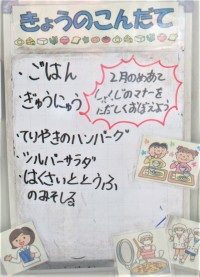 きょうのこんだて
・ごはん
・ぎゅうにゅう
2月のめあて
しょくじのマナーを
ただしくおぼえよう
・てりやきのハンバーグ
・ツルバーサラダ
・はくさいととうふ
のみそしる